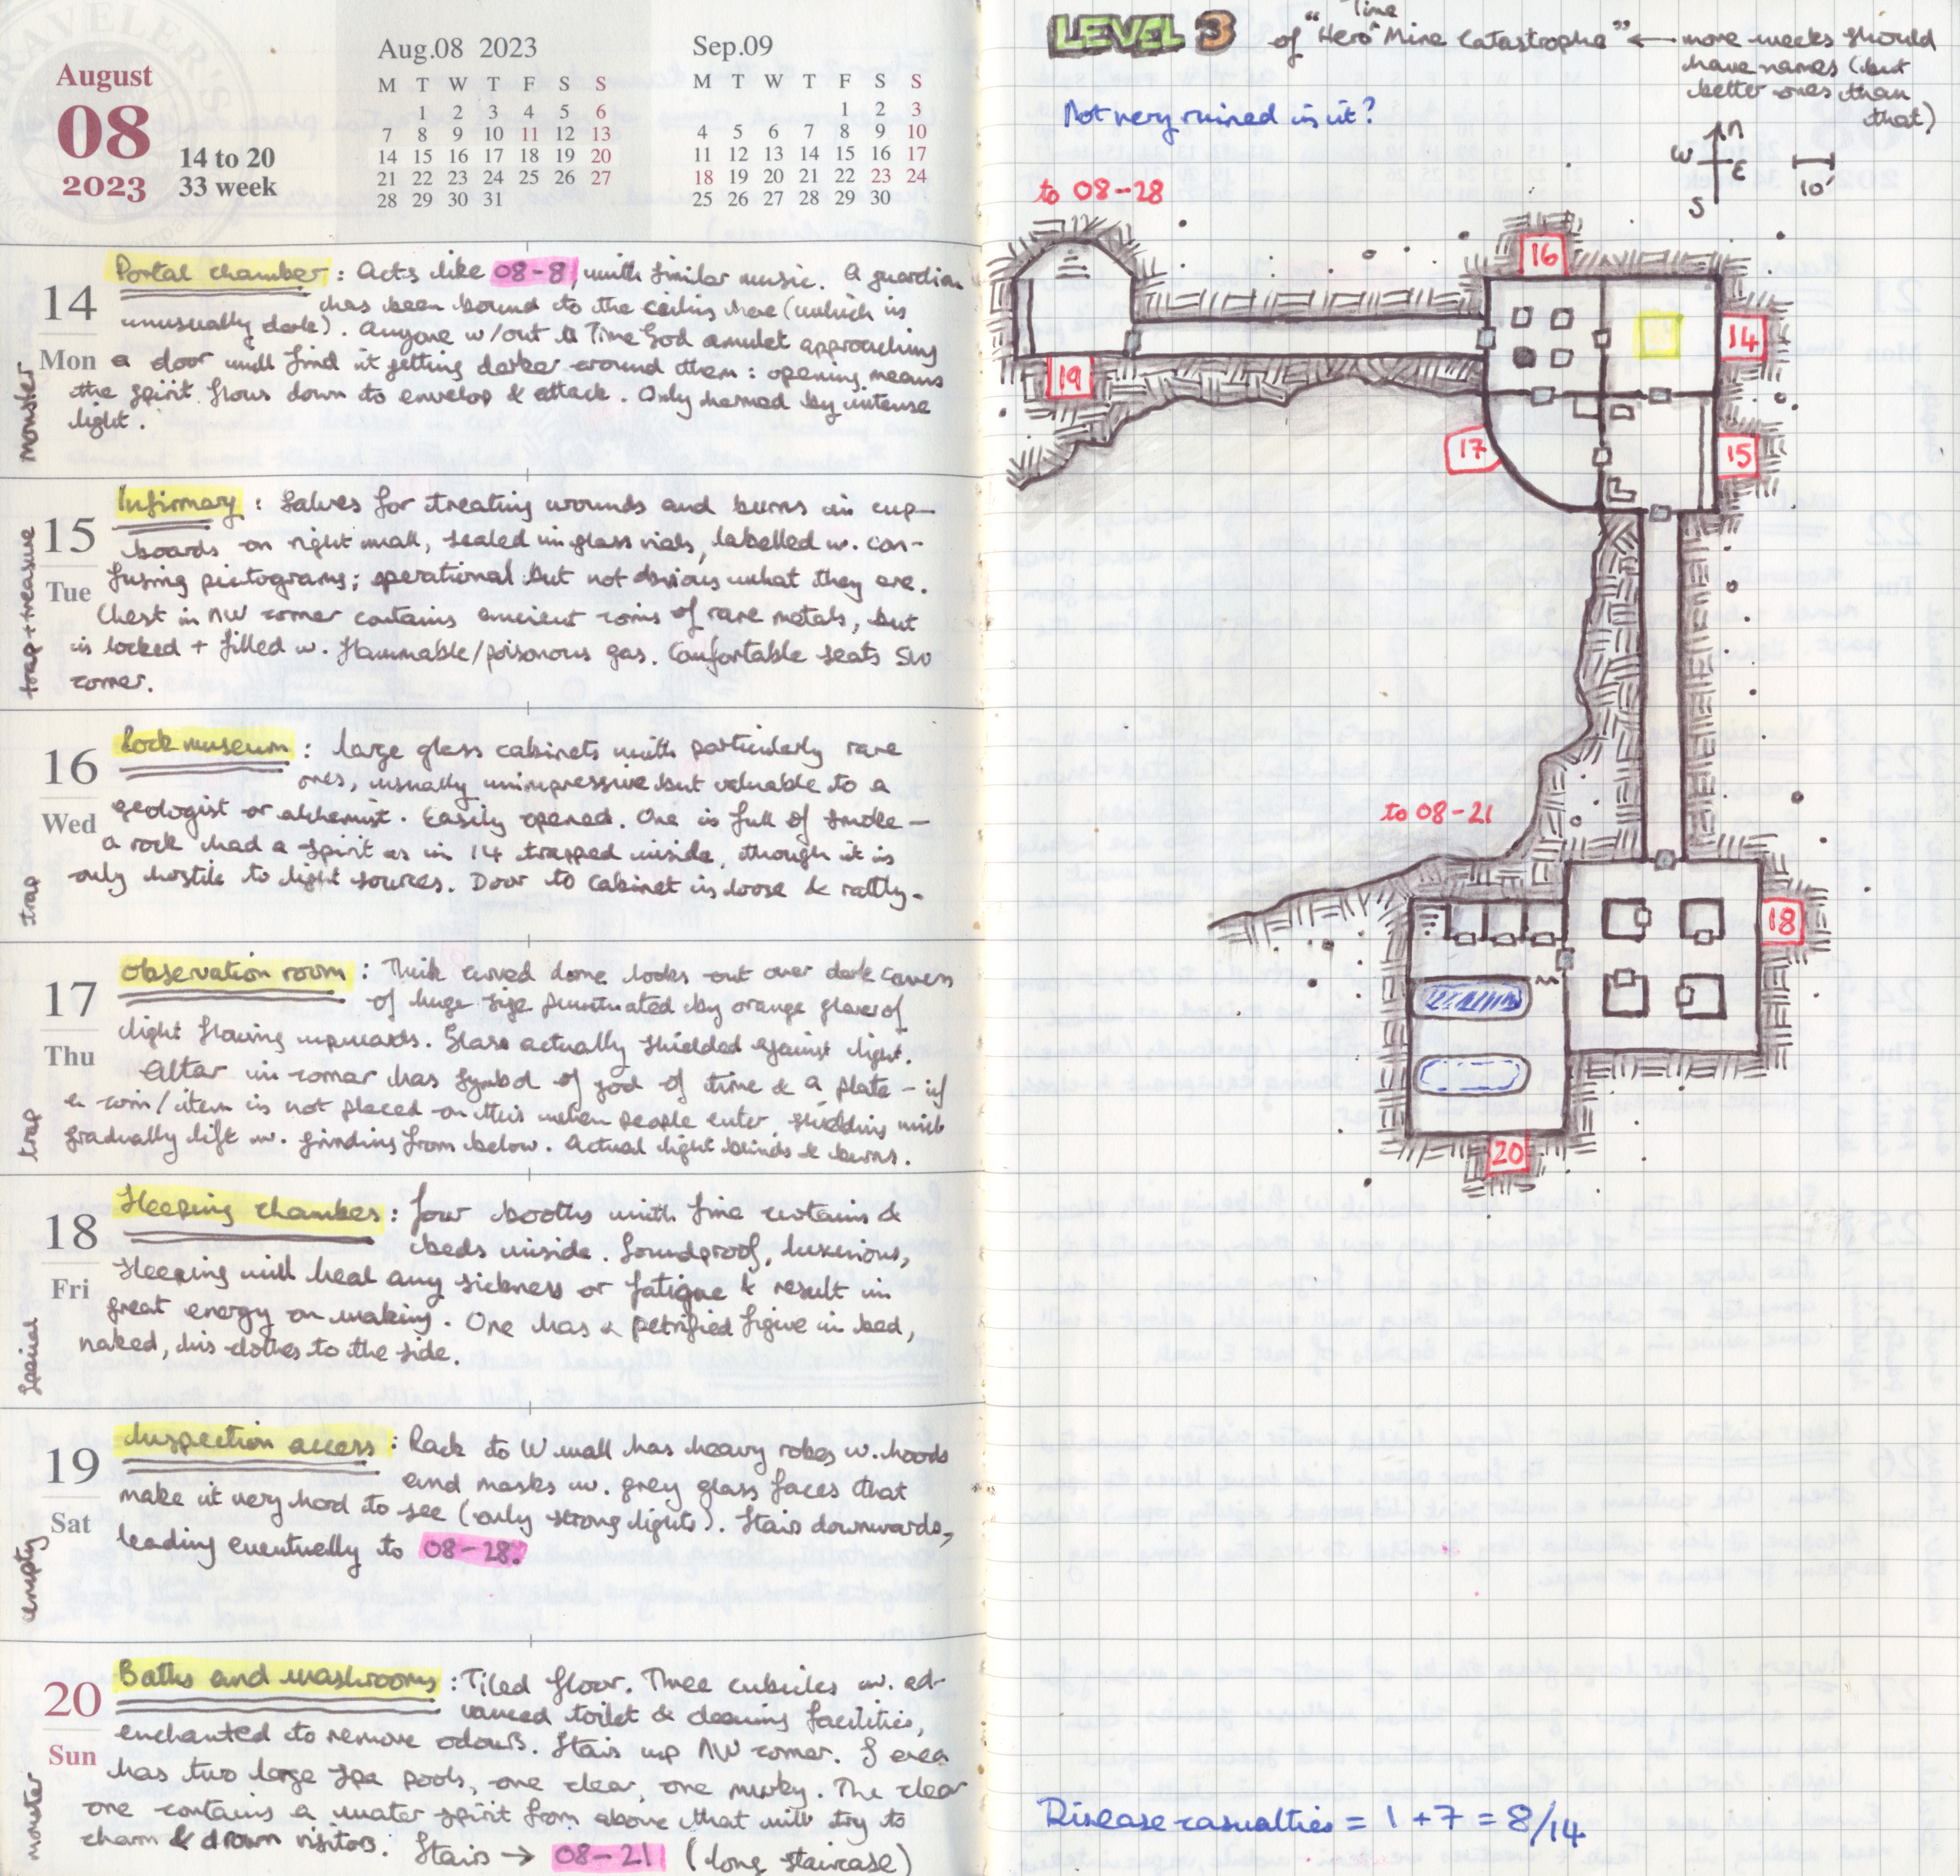 August
08
2023
14 to 20
33 week
Aug.08 2023
M T W T F S S
1 2 3 4 5 6
7 8 9 10 11 12 13
14 15 16 17 18 19 20
21 22 23 24 25 26 27
28 29 30 31
Sep.09
M T W T F S S
1 2 3
4 5 6 7 8 9 10
11 12 13 14 15 16 17
18 19 20 21 22 23 24
25 26 27 28 29 30
14
Mon
monster
Portal chamber : Acts like 08-8, with similar music. A guardian
has been bound to the ceiling here (which is
unusually dark). Anyone w/out a Time God amulet approaching
a door will find it getting darker around them : opening means
the spirit flows down to envelop & attack. Only harmed by intense
light.
15
Tue
trap + treasure
Infirmary : Salves for treating wounds and burns in cup-
boards on right wall, sealed in glass vials, labelled w. con-
fusing pictograms; operational but not obvious what they are.
Chest in NW corner contains ancient coins of rare metals, but
is locked + filled w. flammable/poisonous gas. Comfortable seats SW
corner.
16
Wed
trap
Rock museum : large glass cabinets with particularly rare
ones, usually unimpressive but valuable to a
geologist or alchemist. Easily opened. One is full of smoke -
a rock had a spirit as in 14 trapped inside, though it is
only hostile to light sources. Door to cabinet is loose & rattly.
17
Thu
trap
Observation room : Thick curved dome looks out over dark cavern
of huge size punctuated by orange glows of
light flowing upwards. Glass actually shielded against light.
Altar in corner has symbol of god of time & a plate - if
a coin/item is not placed on this when people enter, shielding will
gradually lift w. grinding from below. Actual light blinds & burns.
18
Fri
Special
Sleeping chamber : Four booths with fine curtains &
beds inside. Soundproof, luxurious,
Sleeping will heal any sickness or fatigue & result in
great energy on waking. One has a petrified figure in bed,
naked, his clothes to the side.
19
Sat
empty
Inspection access : Rack to W wall has heavy robes w. hoods
and masks w. grey glass faces that
make it very hard to see (only strong lights). Stairs downwards,
leading eventually to 08-28.
20
Sun
monster
Baths and washrooms : Tiled floor. Three cubicles w. ad-
vanced toilet & cleaning facilities,
enchanted to remove odours. Stairs up NW corner. S area
has two large spa pools, one clear, one murky. The clear
one contains a water spirit from above that will try to
charm & drown visitors. Stairs → 08-21 (long staircase)
LEVEL 3 of "Hero Time Mine Catastrophe" ← more weeks should
have names (but
better ones than
that)
Not very ruined is it?
N
W
E
S
10'
to 08-28
16
14
19
17
15
to 08-21
18
20
Disease casualties = 1 + 7 = 8/14